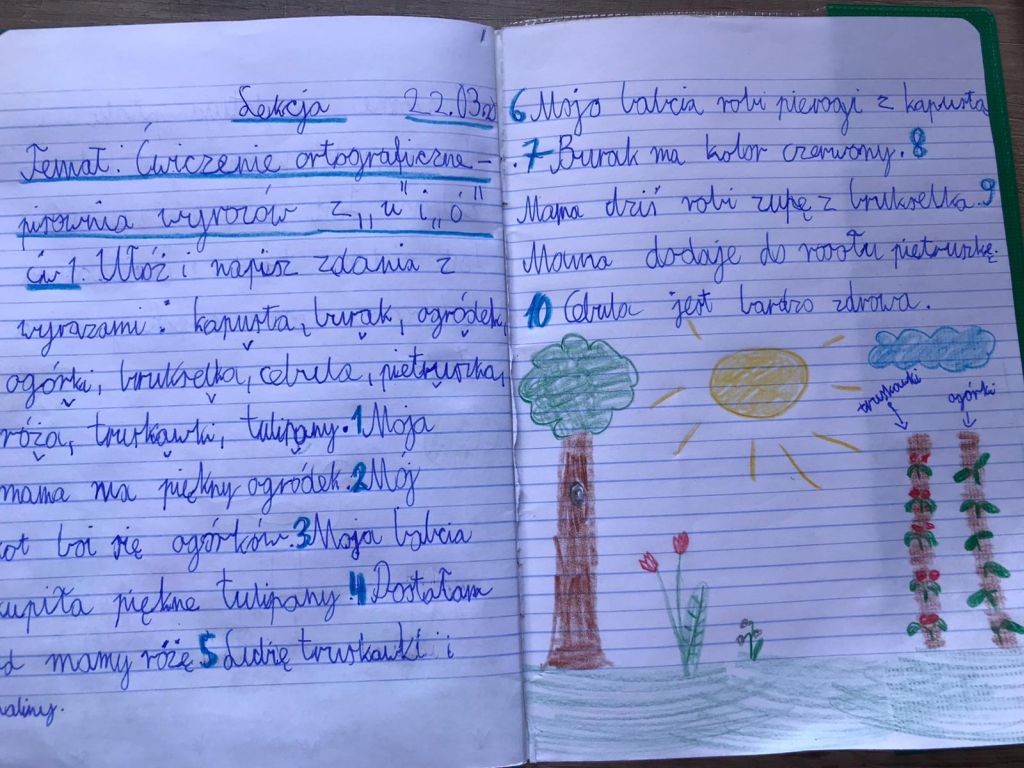 Lekcja 22.03.20
Temat: Ćwiczenie ortograficzne -
pisownia wyrazów z „u" i „ó"
ćw 1. Ułóż i napisz zdania z
wyrazami: kapusta, burak, ogródek,
ogórki, brukselka, cebula, pietruszka,
róża, truskawki, tulipany. 1 Moja
mama ma piękny ogródek. 2 Mój
kot boi się ogórków. 3 Moja babcia
kupiła piękne tulipany. 4 Dostałam
od mamy różę 5 Lubię truskawki i
maliny.
6 Moja babcia robi pierogi z kapustą
. 7 Burak ma kolor czerwony. 8
Mama dziś robi zupę z brukselka. 9
Mama dodaje do rosołu pietruszkę.
10 Cebula jest bardzo zdrowa.
truskawki
ogórki